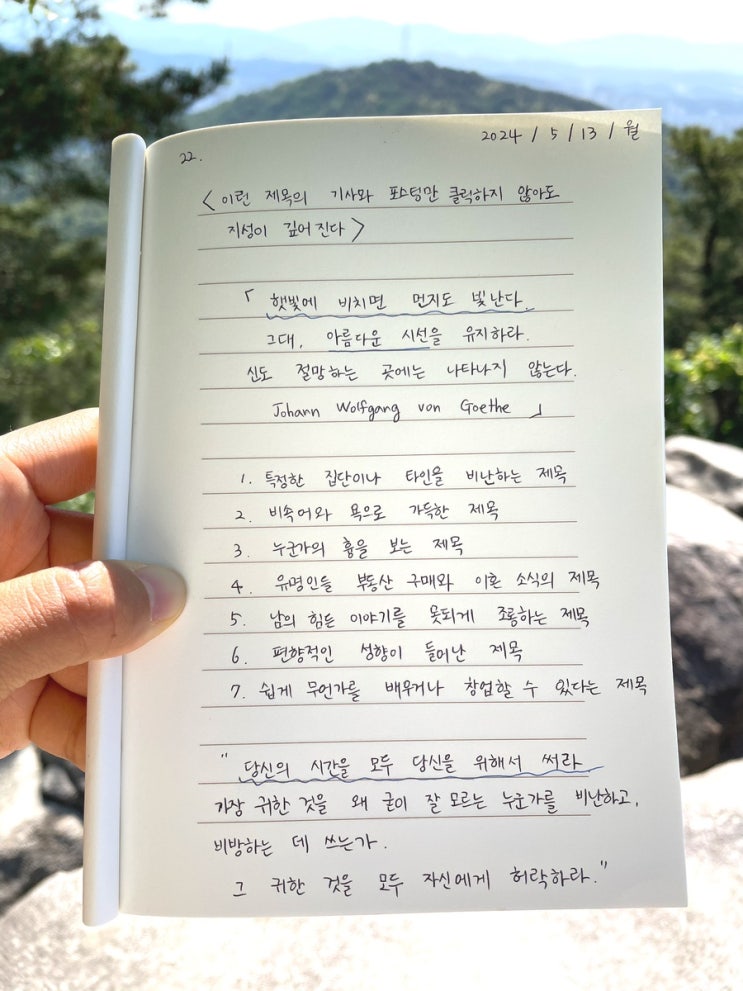 2024 / 5 / 13 / 월
22.
< 이런 제목의 기사와 포스팅만 클릭하지 않아도
지성이 깊어진다 >
「 햇빛에 비치면 먼지도 빛난다.
그대, 아름다운 시선을 유지하라.
신도 절망하는 곳에는 나타나지 않는다.
Johann Wolfgang von Goethe 」
1. 특정한 집단이나 타인을 비난하는 제목
2. 비속어와 욕으로 가득한 제목
3. 누군가의 흉을 보는 제목
4. 유명인들 부동산 구매와 이혼 소식의 제목
5. 남의 힘든 이야기를 못되게 조롱하는 제목
6. 편향적인 성향이 들어난 제목
7. 쉽게 무언가를 배우거나 창업할 수 있다는 제목
" 당신의 시간을 모두 당신을 위해서 써라
가장 귀한 것을 왜 굳이 잘 모르는 누군가를 비난하고,
비방하는 데 쓰는가.
그 귀한 것을 모두 자신에게 허락하라."